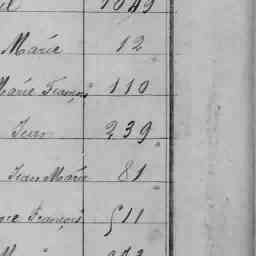 1049
Marie 12
Marie François 110
Jean 239
Jean Marie 81
François 511